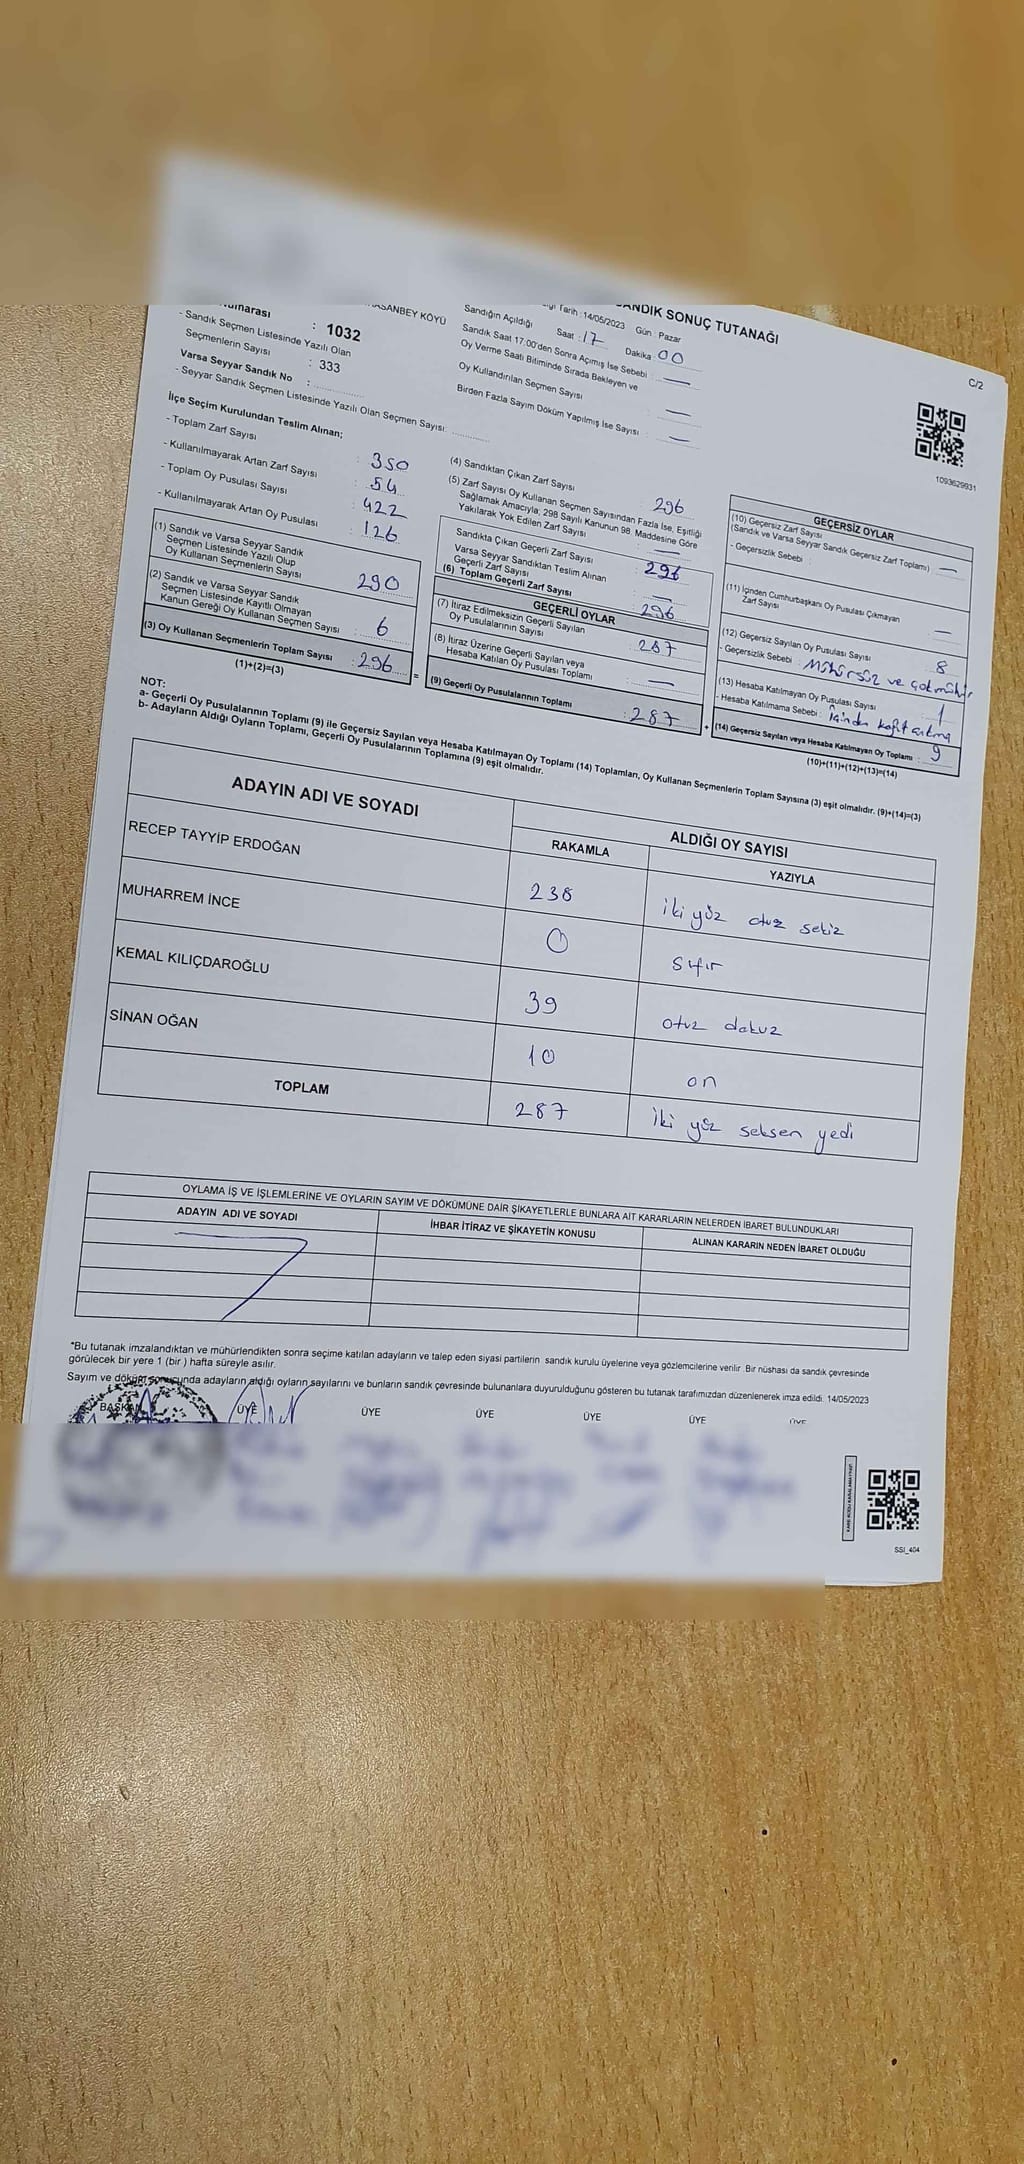 SANDIK SONUÇ TUTANAĞI
C/2
1093629931
: 1032
- Sandık Seçmen Listesinde Yazılı Olan
Seçmenlerin Sayısı : 333
Varsa Seyyar Sandık No :
- Seyyar Sandık Seçmen Listesinde Yazılı Olan Seçmen Sayısı:
Tarih :14/05/2023 Gün : Pazar
Sandığın Açıldığı Saat : 17 Dakika : 00
Sandık Saat 17:00'den Sonra Açımış İse Sebebi : —
Oy Verme Saati Bitiminde Sırada Bekleyen ve
Oy Kullandırılan Seçmen Sayısı : —
Birden Fazla Sayım Döküm Yapılmış İse Sayısı : —
İlçe Seçim Kurulundan Teslim Alınan;
- Toplam Zarf Sayısı : 350
- Kullanılmayarak Artan Zarf Sayısı : 54
- Toplam Oy Pusulası Sayısı : 422
- Kullanılmayarak Artan Oy Pusulası : 126
(1) Sandık ve Varsa Seyyar Sandık
Seçmen Listesinde Yazılı Olup
Oy Kullanan Seçmenlerin Sayısı : 290
(2) Sandık ve Varsa Seyyar Sandık
Seçmen Listesinde Kayıtlı Olmayan
Kanun Gereği Oy Kullanan Seçmen Sayısı : 6
(3) Oy Kullanan Seçmenlerin Toplam Sayısı : 296
(1)+(2)=(3)
=
(4) Sandıktan Çıkan Zarf Sayısı 296
(5) Zarf Sayısı Oy Kullanan Seçmen Sayısından Fazla İse, Eşitliği
Sağlamak Amacıyla; 298 Sayılı Kanunun 98. Maddesine Göre
Yakılarak Yok Edilen Zarf Sayısı : —
Sandıkta Çıkan Geçerli Zarf Sayısı : 296
Varsa Seyyar Sandıktan Teslim Alınan
Geçerli Zarf Sayısı : —
(6) Toplam Geçerli Zarf Sayısı : 296
GEÇERLİ OYLAR
(7) İtiraz Edilmeksizin Geçerli Sayılan
Oy Pusulalarının Sayısı : 287
(8) İtiraz Üzerine Geçerli Sayılan veya
Hesaba Katılan Oy Pusulası Toplamı : —
(9) Geçerli Oy Pusulalarının Toplamı : 287
+
GEÇERSİZ OYLAR
(10) Geçersiz Zarf Sayısı
(Sandık ve Varsa Seyyar Sandık Geçersiz Zarf Toplamı) : —
- Geçersizlik Sebebi :
(11) İçinden Cumhurbaşkanı Oy Pusulası Çıkmayan
Zarf Sayısı : —
(12) Geçersiz Sayılan Oy Pusulası Sayısı : 8
- Geçersizlik Sebebi : Mühürsüz ve çok mühür
(13) Hesaba Katılmayan Oy Pusulası Sayısı : 1
- Hesaba Katılmama Sebebi : İçinden kağıt çıkma
(14) Geçersiz Sayılan veya Hesaba Katılmayan Oy Toplamı : 9
(10)+(11)+(12)+(13)=(14)
NOT:
a- Geçerli Oy Pusulalarının Toplamı (9) ile Geçersiz Sayılan veya Hesaba Katılmayan Oy Toplamı (14) Toplamları, Oy Kullanan Seçmenlerin Toplam Sayısına (3) eşit olmalıdır. (9)+(14)=(3)
b- Adayların Aldığı Oyların Toplamı, Geçerli Oy Pusulalarının Toplamına (9) eşit olmalıdır.
ADAYIN ADI VE SOYADI
ALDIĞI OY SAYISI
RAKAMLA YAZIYLA
RECEP TAYYİP ERDOĞAN 238 iki yüz otuz sekiz
MUHARREM İNCE 0 sıfır
KEMAL KILIÇDAROĞLU 39 otuz dokuz
SİNAN OĞAN 10 on
TOPLAM 287 iki yüz seksen yedi
OYLAMA İŞ VE İŞLEMLERİNE VE OYLARIN SAYIM VE DÖKÜMÜNE DAİR ŞİKAYETLERLE BUNLARA AİT KARARLARIN NELERDEN İBARET BULUNDUKLARI
ADAYIN ADI VE SOYADI İHBAR İTİRAZ VE ŞİKAYETİN KONUSU ALINAN KARARIN NEDEN İBARET OLDUĞU
*Bu tutanak imzalandıktan ve mühürlendikten sonra seçime katılan adayların ve talep eden siyasi partilerin sandık kurulu üyelerine veya gözlemcilerine verilir. Bir nüshası da sandık çevresinde
görülecek bir yere 1 (bir ) hafta süreyle asılır.
Sayım ve döküm sonucunda adayların aldığı oyların sayılarını ve bunların sandık çevresinde bulunanlara duyurulduğunu gösteren bu tutanak tarafımızdan düzenlenerek imza edildi. 14/05/2023
BAŞKAN ÜYE ÜYE ÜYE ÜYE ÜYE ÜYE
SSI_404